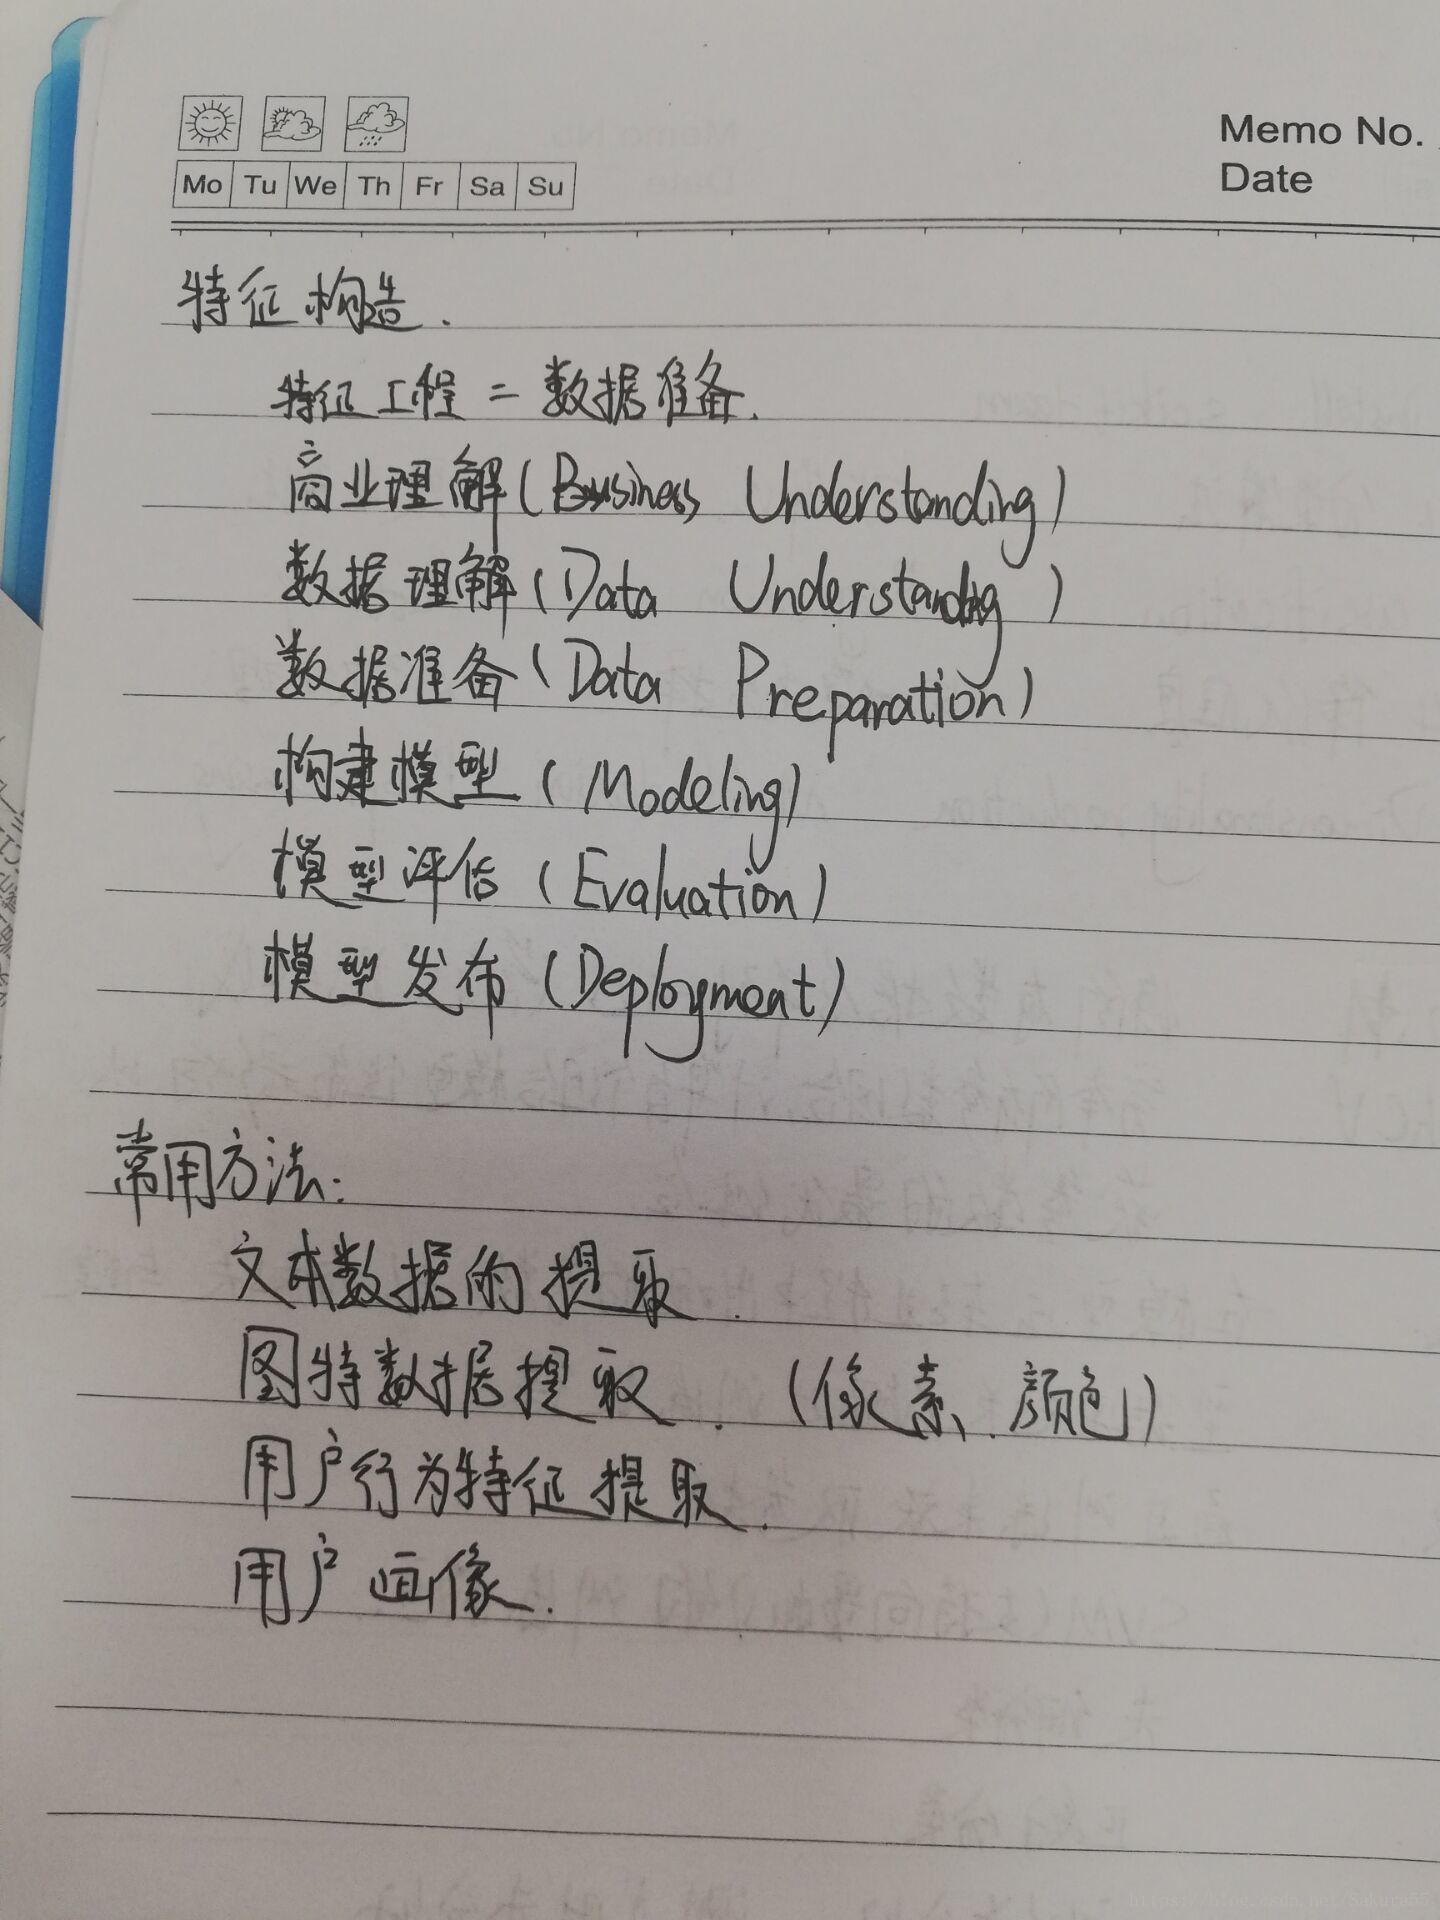 Memo No.
Mo Tu We Th Fr Sa Su
Date
特征构造.
特征工程 = 数据准备.
商业理解(Business Understanding)
数据理解(Data Understanding)
数据准备(Data Preparation)
构建模型(Modeling)
模型评估(Evaluation)
模型发布(Deployment)
常用方法:
文本数据的提取.
图特数据提取.(像素、颜色)
用户行为特征提取.
用户画像.